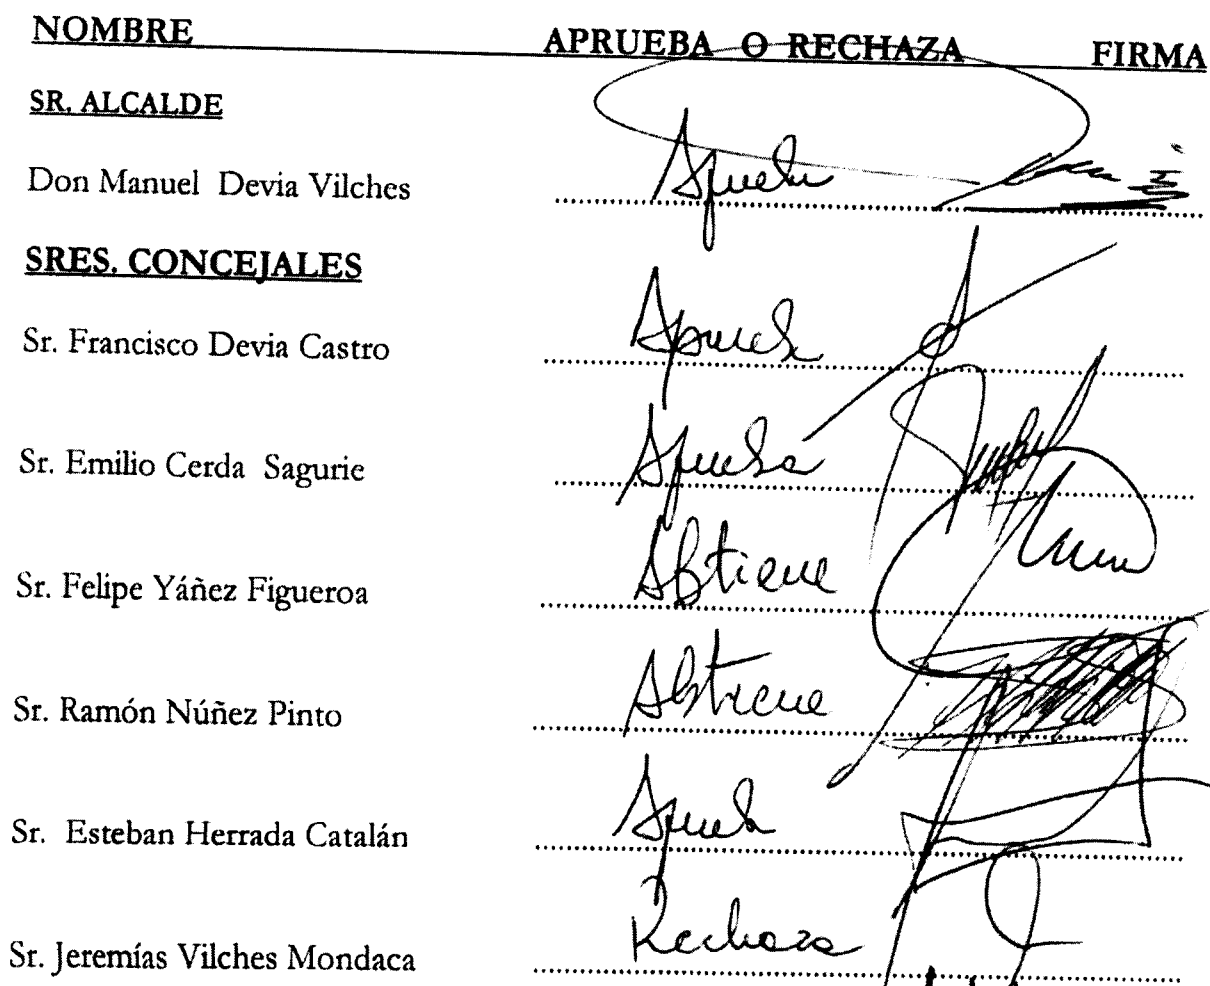 NOMBRE APRUEBA O RECHAZA FIRMA
SR. ALCALDE
Don Manuel Devia Vilches Aprueba
SRES. CONCEJALES
Sr. Francisco Devia Castro Aprueba
Sr. Emilio Cerda Sagurie Aprueba
Sr. Felipe Yáñez Figueroa Abtiene
Sr. Ramón Núñez Pinto Abtiene
Sr. Esteban Herrada Catalán Aprueba
Sr. Jeremías Vilches Mondaca Rechaza